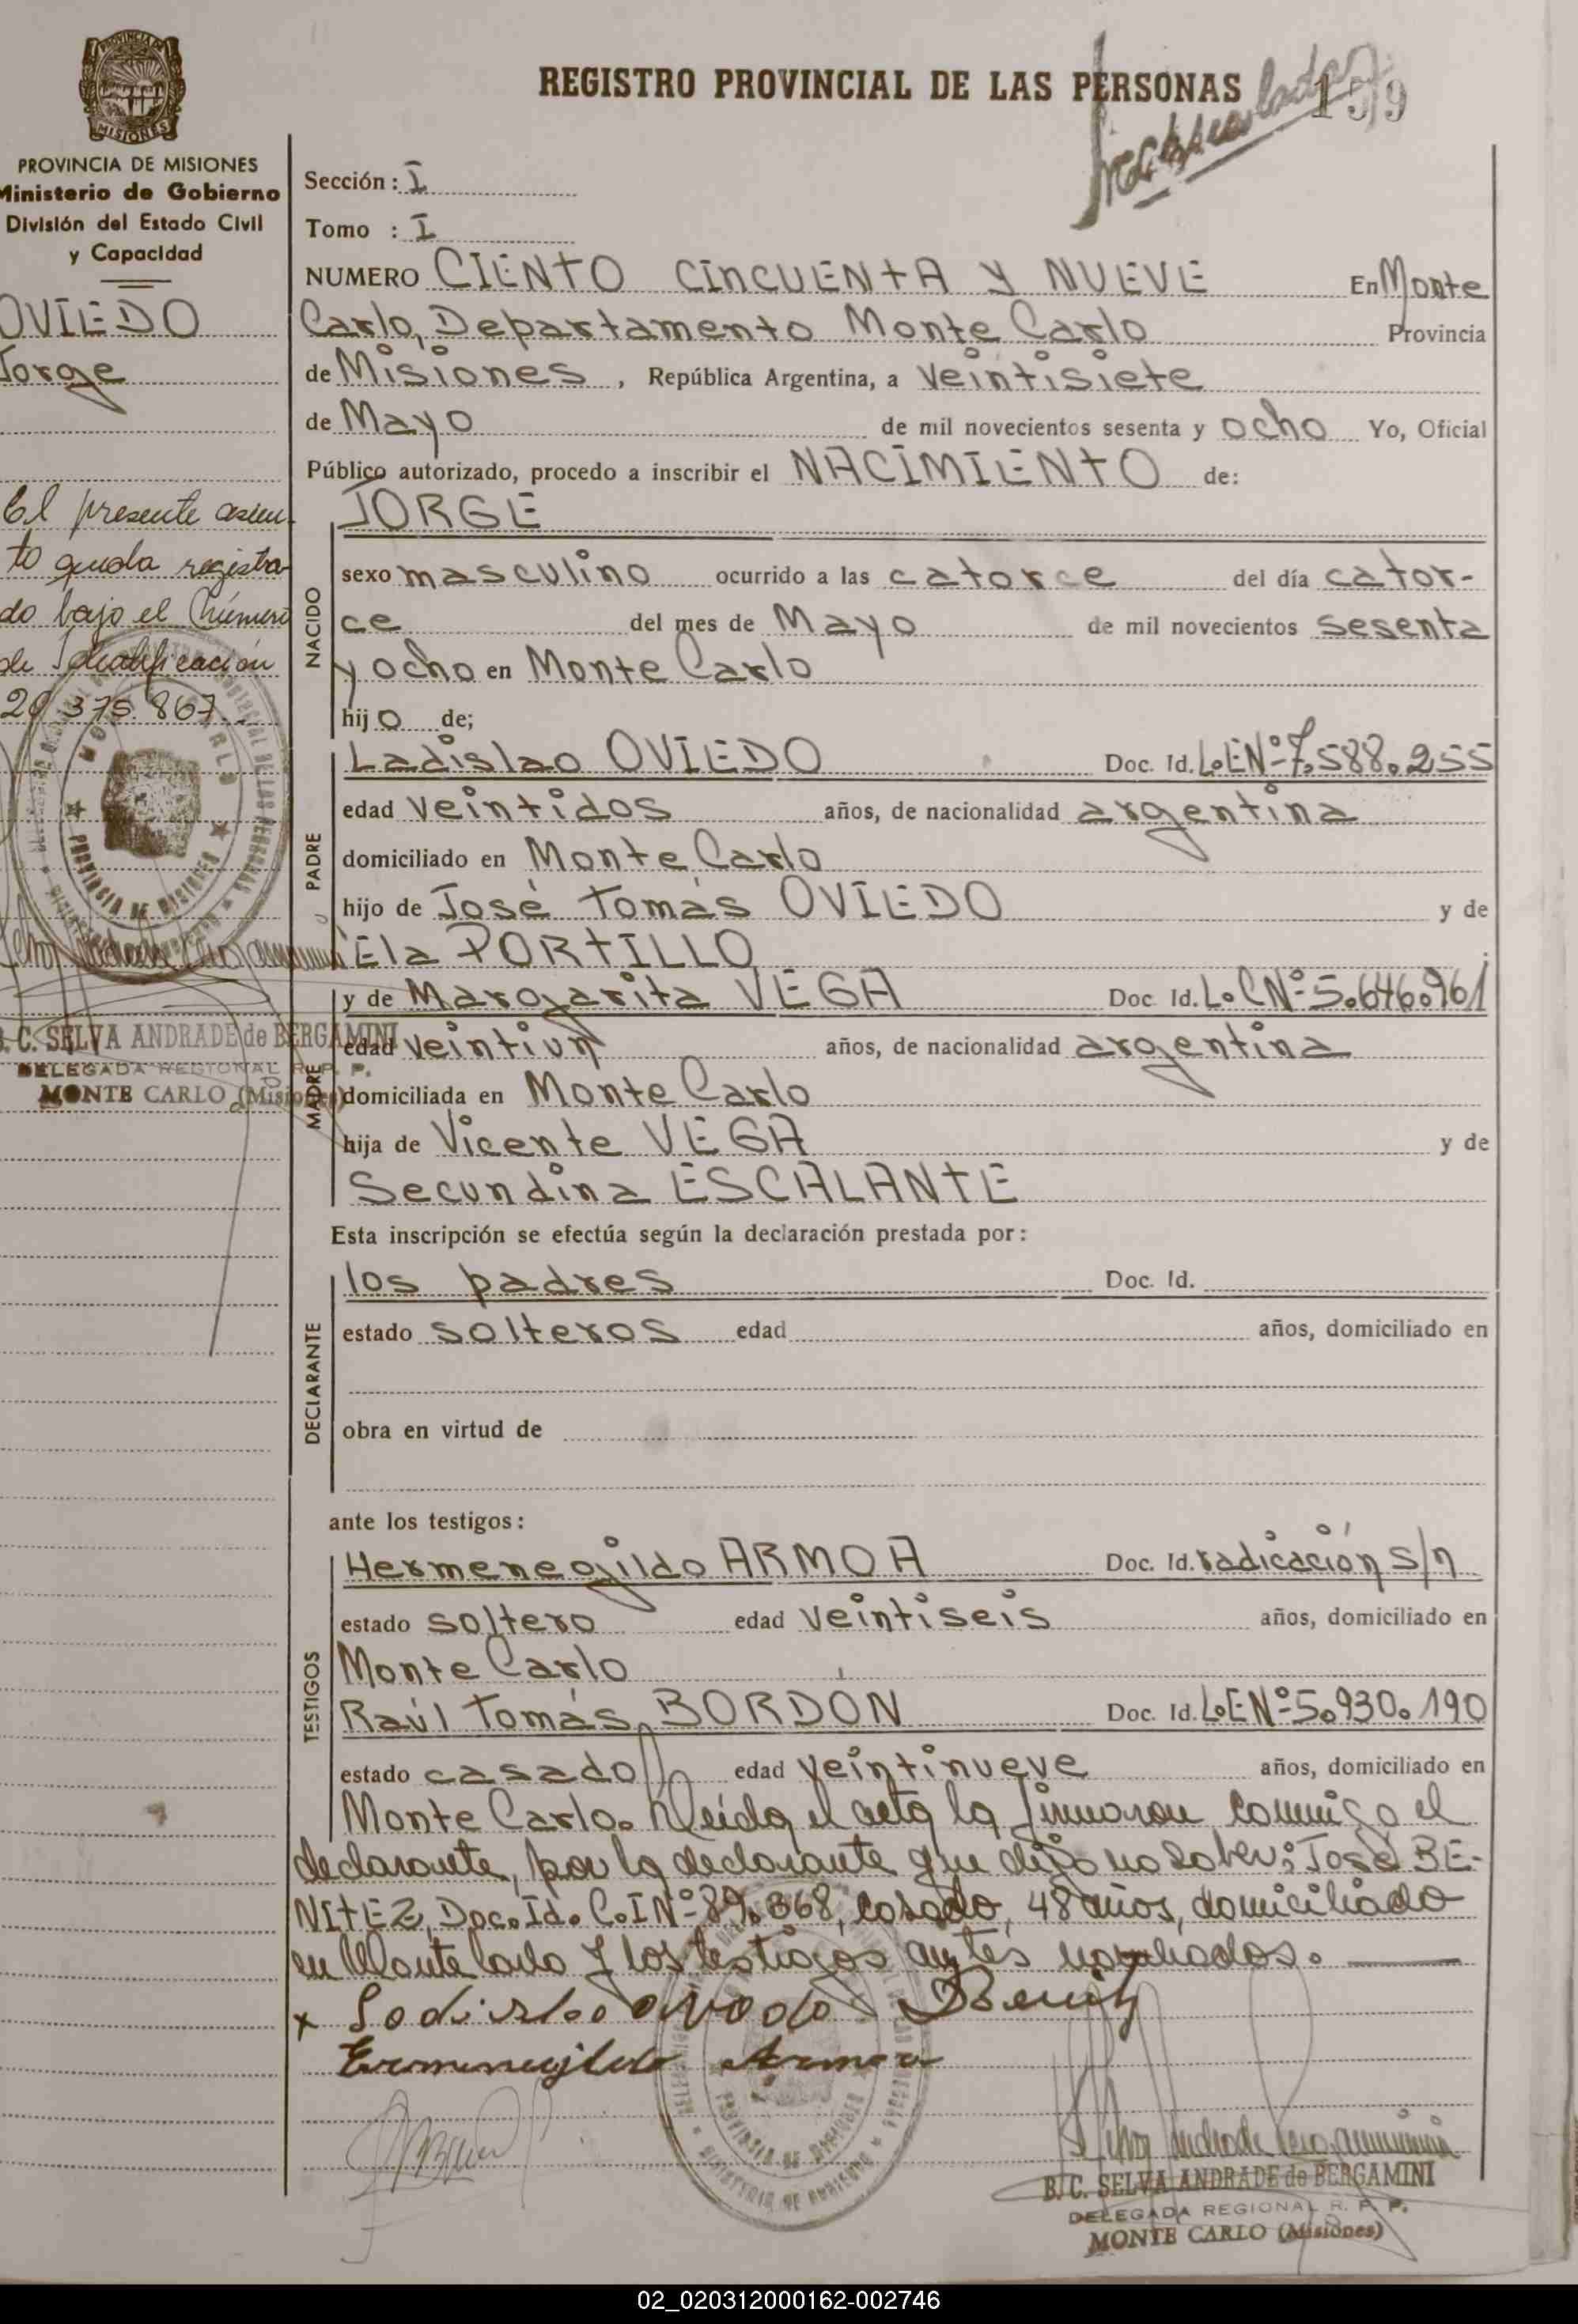 REGISTRO PROVINCIAL DE LAS PERSONAS
159
PROVINCIA DE MISIONES
Ministerio de Gobierno
División del Estado Civil
y Capacidad
OVIEDO
Jorge
El presente asien-
to queda registra-
do bajo el Número
de Identificación
20.375.867
B. C. SELVA ANDRADE de BERGAMINI
DELEGADA REGIONAL R. P. P.
MONTE CARLO (Misiones)
Sección: I
Tomo : I
NUMERO CIENTO CINCUENTA Y NUEVE En Monte
Carlo, Departamento Monte Carlo Provincia
de Misiones, República Argentina, a veintisiete
de Mayo de mil novecientos sesenta y ocho Yo, Oficial
Público autorizado, procedo a inscribir el NACIMIENTO de:
JORGE
NACIDO
sexo masculino ocurrido a las catorce del día cator-
ce del mes de Mayo de mil novecientos sesenta
y ocho en Monte Carlo
hijo de;
PADRE
Ladislao OVIEDO Doc. Id. L.E.Nº 7.588.255
edad veintidos años, de nacionalidad argentina
domiciliado en Monte Carlo
hijo de José Tomás OVIEDO y de
Ela PORTILLO
MADRE
y de Margarita VEGA Doc. Id. L.C.Nº 5.646.961
edad veintiun años, de nacionalidad argentina
domiciliada en Monte Carlo
hija de Vicente VEGA y de
Secundina ESCALANTE
Esta inscripción se efectúa según la declaración prestada por:
DECLARANTE
los padres Doc. Id.
estado solteros edad años, domiciliado en
obra en virtud de
ante los testigos:
TESTIGOS
Hermenegildo ARMOA Doc. Id. radicación s/n
estado soltero edad veintiseis años, domiciliado en
Monte Carlo
Raúl Tomás BORDON Doc. Id. L.E.Nº 5.930.190
estado casado edad veintinueve años, domiciliado en
Monte Carlo. Leída el acta la firmaron conmigo el
declarante, por la declarante que dijo no saber: José BE-
NITEZ, Doc. Id. C.I.Nº 89.368, casado, 48 años, domiciliado
en Monte Carlo y los testigos antes nombrados.
B. C. SELVA ANDRADE de BERGAMINI
DELEGADA REGIONAL R. P. P.
MONTE CARLO (Misiones)
02_020312000162-002746